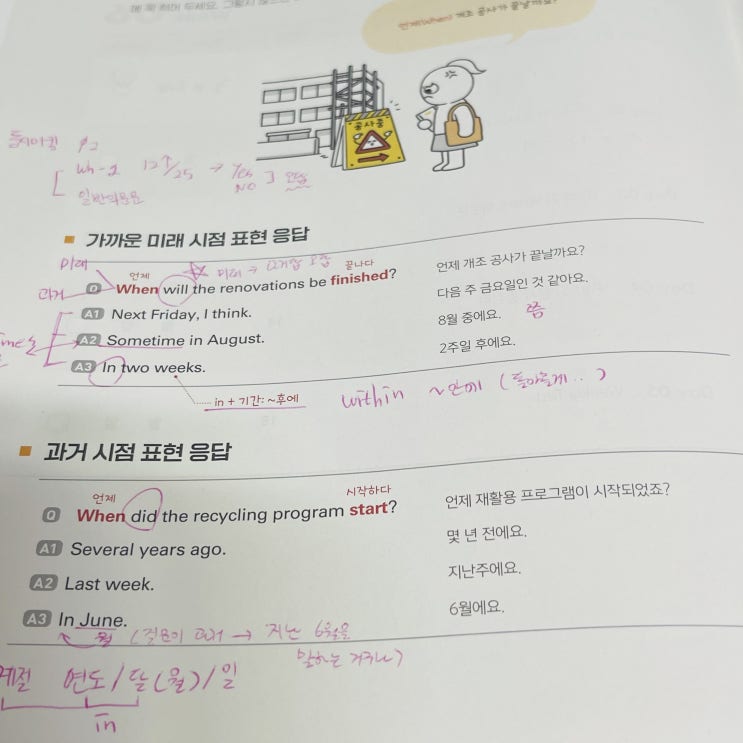 언제(When) 개조 공사가 끝날까요?
공사중
Wh- 12↑/25 → Yes
No
일반의문문
가까운 미래 시점 표현 응답
미래
과거
언제
미래 → 과거
끝나다
Q When will the renovations be finished?
언제 개조 공사가 끝날까요?
A1 Next Friday, I think.
다음 주 금요일인 것 같아요.
A2 Sometime in August.
8월 중에요. 쯤
A3 In two weeks.
2주일 후에요.
in + 기간: ~후에
within ~안에 (돌아올게..)
과거 시점 표현 응답
언제
시작하다
Q When did the recycling program start?
언제 재활용 프로그램이 시작되었죠?
A1 Several years ago.
몇 년 전에요.
A2 Last week.
지난주에요.
A3 In June.
6월에요.
월 (질문이 과거 → 지난 6월을
말하는 거구나)
계절 연도/달(월)/일
in